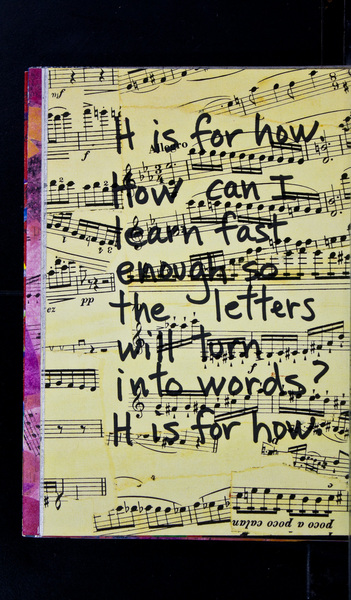 H is for how.
Allegro
How can I
learn fast
enough so
the letters
will turn
into words?
H is for how.
f
pp
ez
poco a poco calan